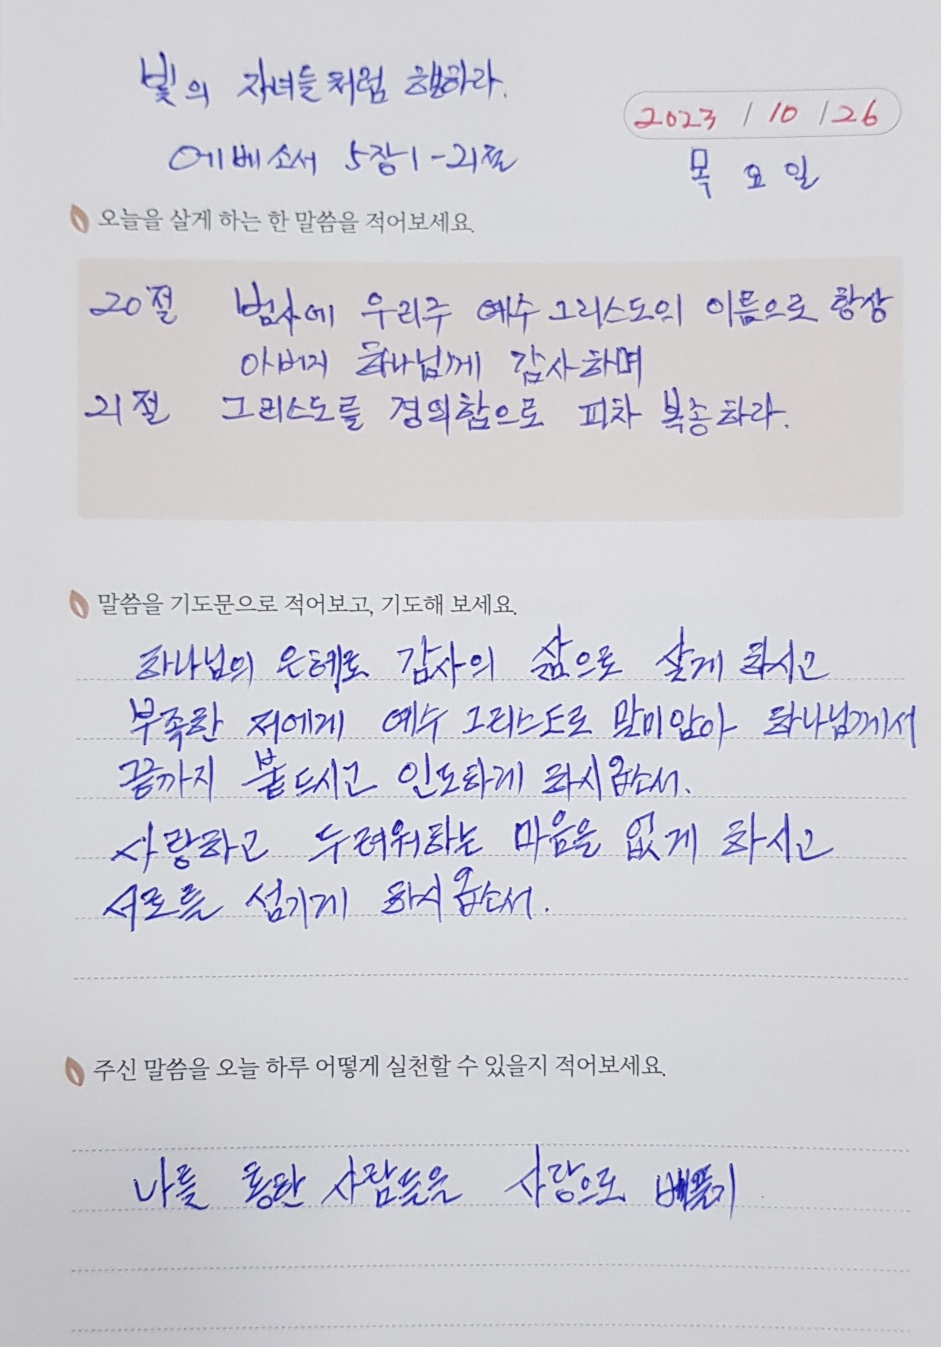 빛의 자녀들처럼 행하라.
2023 / 10 / 26
에베소서 5장1-21절
목요일
오늘을 살게 하는 한 말씀을 적어보세요.
20절 범사에 우리주 예수 그리스도의 이름으로 항상
아버지 하나님께 감사하며
21절 그리스도를 경외함으로 피차 복종하라.
말씀을 기도문으로 적어보고, 기도해 보세요.
하나님의 은혜로 감사의 삶으로 살게 하시고
부족한 저에게 예수 그리스도로 말미암아 하나님께서
끝까지 붙드시고 인도하게 하시옵소서.
사랑하고 두려워하는 마음을 없게 하시고
서로를 섬기게 하시옵소서.
주신 말씀을 오늘 하루 어떻게 실천할 수 있을지 적어보세요.
나를 통한 사람들을 사랑으로